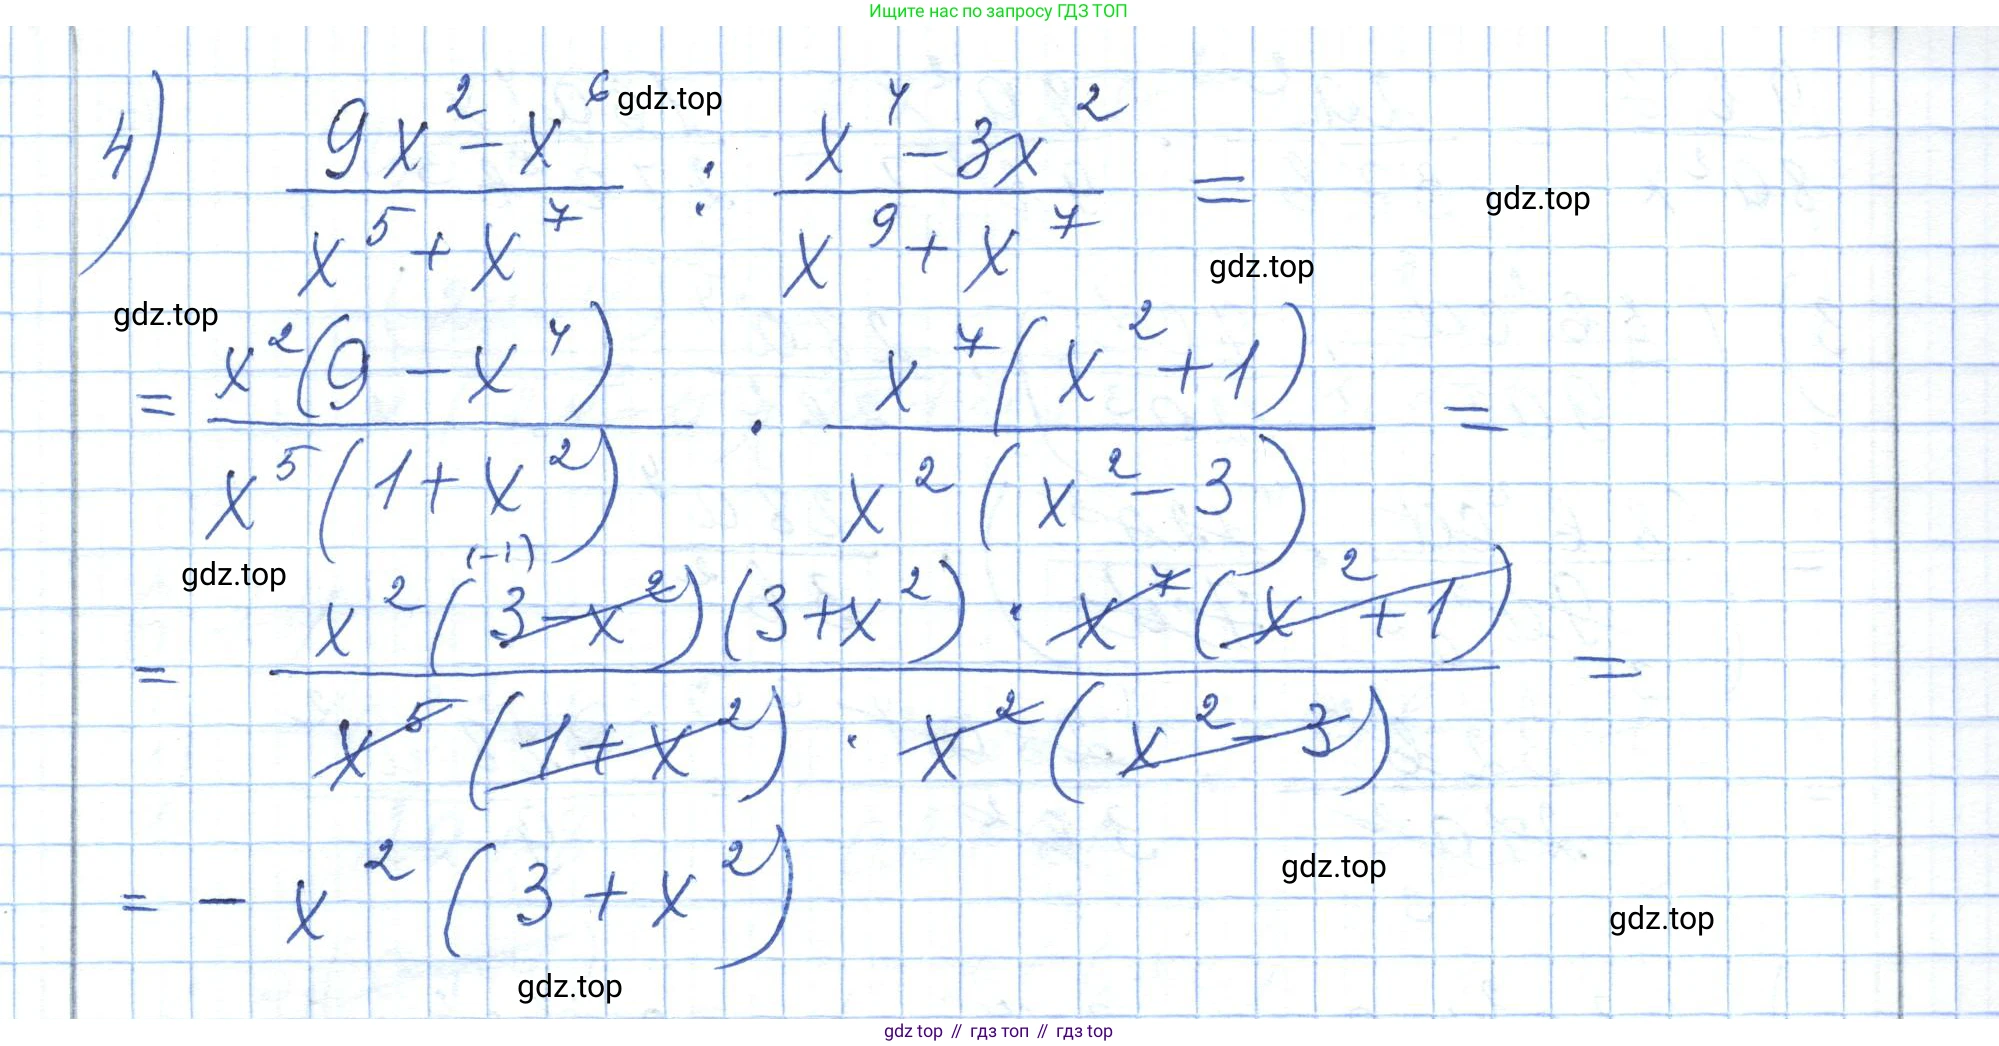 Ищите нас по запросу ГДЗ ТОП
4) (9x² - x⁶)/(x⁵ + x⁷) : (x⁴ - 3x²)/(x⁹ + x⁷) =
gdz.top
gdz.top
gdz.top
gdz.top
= x²(9 - x⁴)/(x⁵(1 + x²)) · x⁷(x² + 1)/(x²(x² - 3)) =
gdz.top
(-1)
= (x²(3 - x²)(3 + x²) · x⁷(x² + 1))/(x⁵(1 + x²) · x²(x² - 3)) =
= - x²(3 + x²)
gdz.top
gdz.top
gdz.top
gdz top // гдз топ // гдз top